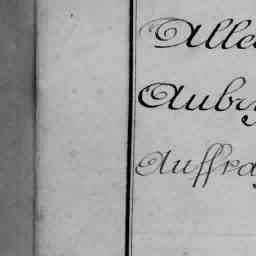 Alle
Aubry
Auffray